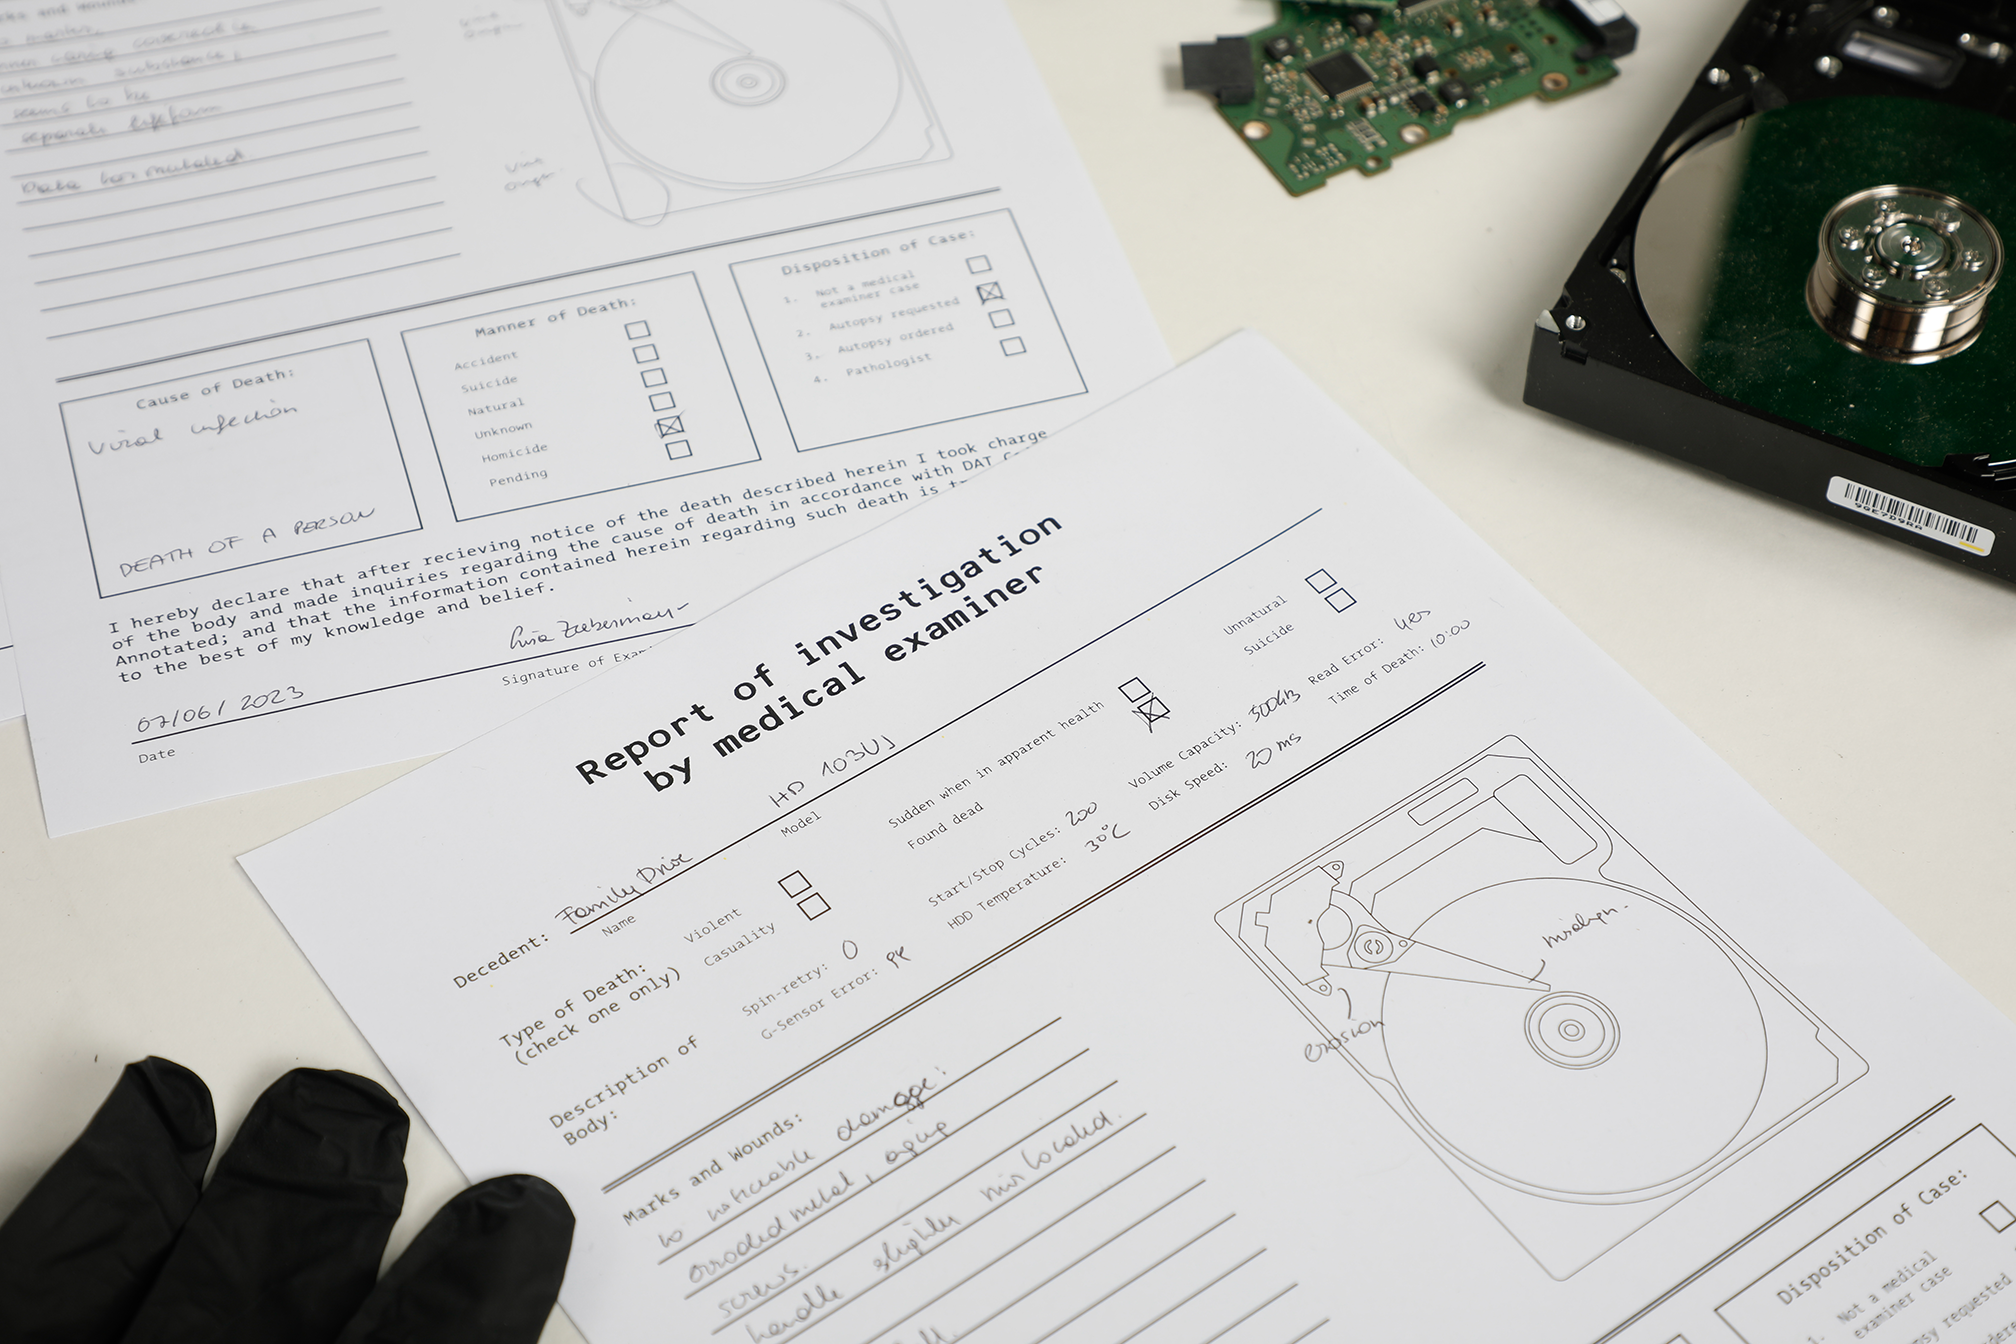 Marks and Wounds:
seems to be
separate lifeform
Cause of Death:
Viral infection
DEATH OF A PERSON
Manner of Death:
Accident
Suicide
Natural
Unknown
Homicide
Pending
Disposition of Case:
1. Not a medical
examiner case
2. Autopsy requested
3. Autopsy ordered
4. Pathologist
I hereby declare that after recieving notice of the death described herein I took charge
of the body and made inquiries regarding the cause of death in accordance with DAT
Annotated; and that the information contained herein regarding such death is
to the best of my knowledge and belief.
07/06/2023
Date
Signature of
Report of investigation
by medical examiner
Decedent:
Family Drive
Name
HD 103UJ
Model
Type of Death:
(check one only)
Violent
Casuality
Sudden when in apparent health
Found dead
Unnatural
Suicide
Description of
Body:
Spin-retry: 0
G-Sensor Error:
Start/Stop Cycles: 200
HDD Temperature: 30°C
Volume Capacity: 500GB
Disk Speed: 20 ms
Read Error: yes
Time of Death: 10:00
Marks and Wounds:
no noticable damage:
corroded metal, aging
screws.
handle slightly mislocated.
misalign.
erosion
Disposition of Case:
1. Not a medical
examiner case
requested